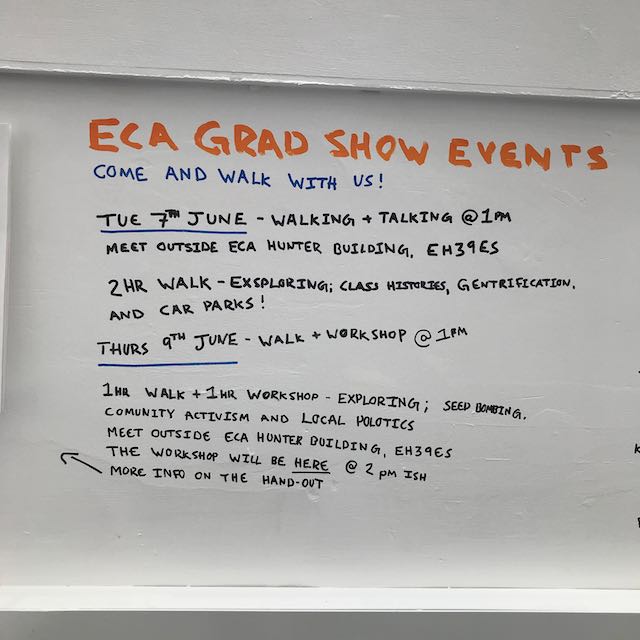 ECA GRAD SHOW EVENTS
COME AND WALK WITH US!
TUE 7TH JUNE - WALKING + TALKING @ 1PM
MEET OUTSIDE ECA HUNTER BUILDING, EH39ES
2HR WALK - EXSPLORING; CLASS HISTORIES, GENTRIFICATION,
AND CAR PARKS!
THURS 9TH JUNE - WALK + WORKSHOP @ 1PM
1HR WALK + 1HR WORKSHOP - EXPLORING; SEED BOMBING,
COMUNITY ACTIVISM AND LOCAL POLOTICS
MEET OUTSIDE ECA HUNTER BUILDING, EH39ES
THE WORKSHOP WILL BE HERE @ 2PM ISH
MORE INFO ON THE HAND-OUT